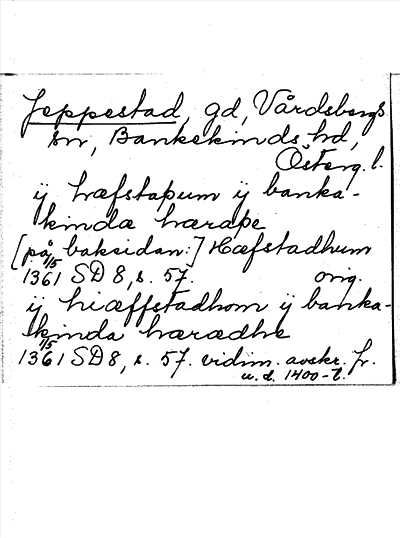 Jeppestad, gd, Vårdsbergs
sn, Bankekinds hd,
Österg. l.
ij hæfstaþum ij banka-
kinda hæraþe
[på baksidan:] Hæfstadhum
1361 1/5 SD 8, s. 57. orig.
ij hiæffstadhom ij banka-
kinda hærædhe
1361 1/5 SD 8, s. 57. vidim. avskr. fr.
u. d. 1400-t.